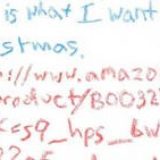 is what I want
stmas.
://www.amazo
product/B003
c=s9_hps_bw